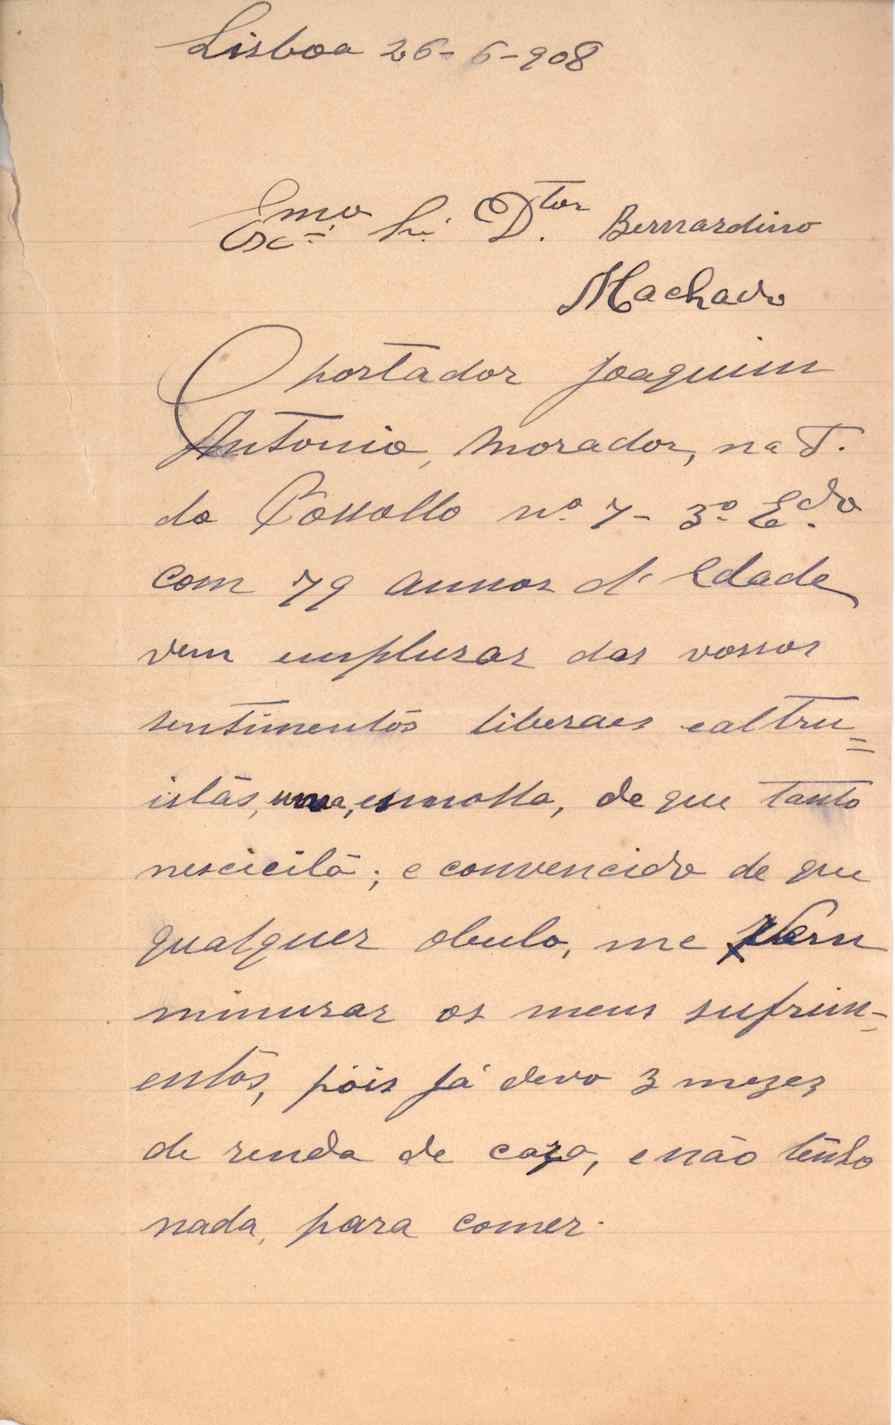 Lisboa 26-6-908
Exc.mo Sr. D.tor Bernardino
Machado
O portador Joaquim
Antonio, morador, na T.
do nº 7- 3º E.do
com 79 annos d'Edade
vem emplurar dos vossos
sentimentos liberaes e altru=
istas, uma, esmolla, de que tanto
nescicita; e convencido de que
qualquer obulo, me vem
minurar os meus sufrim-
entos, pois já devo 3 mezez
de renda de caza, e não tenho
nada, para comer.